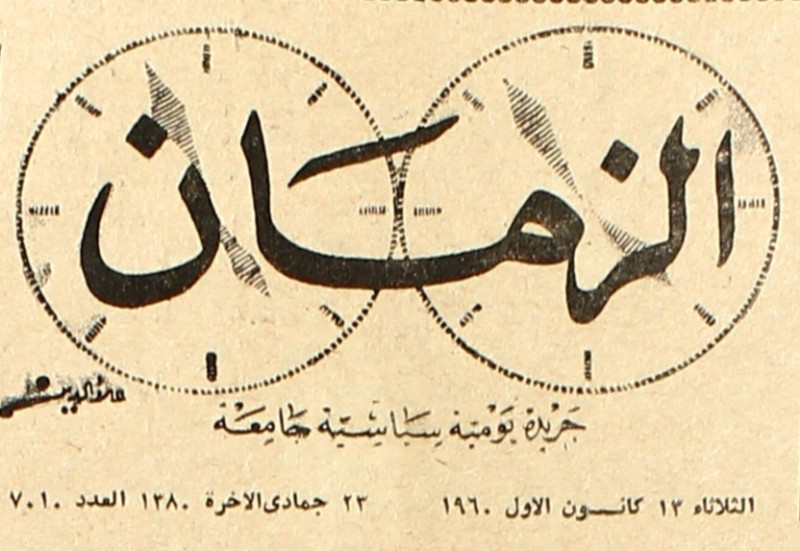 الزمان
جريدة يومية سياسية جامعة
الثلاثاء ١٣ كانون الاول ١٩٦٠ ٢٣ جمادى الاخرة ١٣٨٠ العدد ٧٠١٠